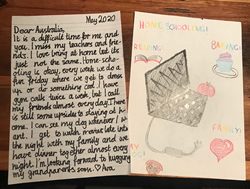 May 2020
Dear Australia,
It is a difficult time for me and
you. I miss my teachers and frie-
nds. I love being at home but its
just not the same. Home scho-
oling is okay, every week we do a
fun friday where we get to dress
up or do something cool. I have
gym calls twice a week but I call
my friends almost every day. There
is still some upside to staying at ho-
me. I can see my dog whenever I w-
ant. I get to watch movies late into
the night with my family and we
have dinner together almost every
night. I'm looking forward to hugging
my grandparents soon. Ava.
HOME SCHOOLING!
READING!
BAKING!
FAMILY!